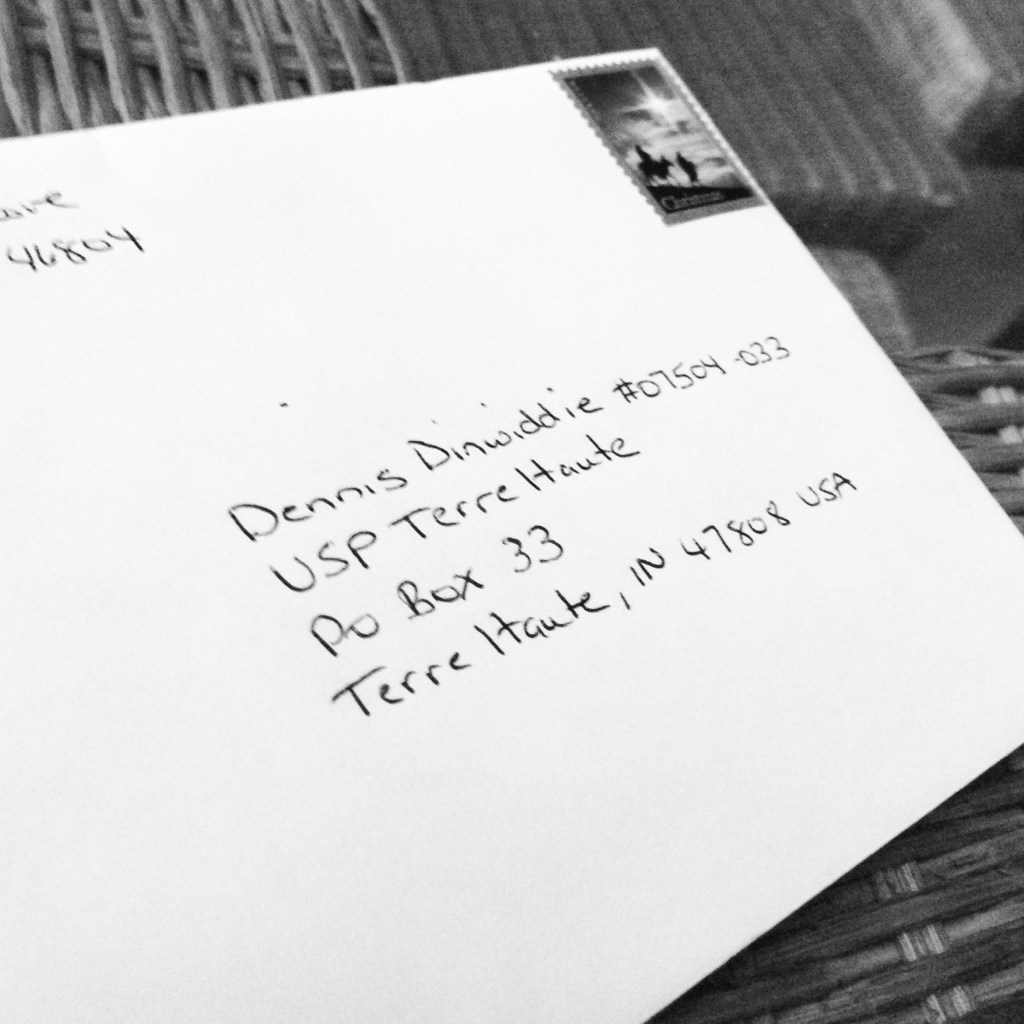 46804
Christmas
Dennis Dinwiddie #07504-033
USP Terre Haute
PO Box 33
Terre Haute, IN 47808 USA